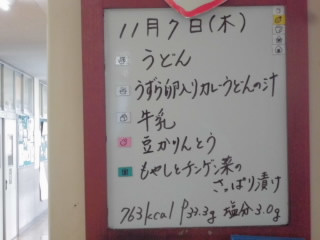 11月7日(木)
うどん
うずら卵入りカレーうどんの汁
牛乳
豆かりんとう
もやしとチンゲン菜の
さっぱり漬け
763kcal P33.3g 塩分3.0g